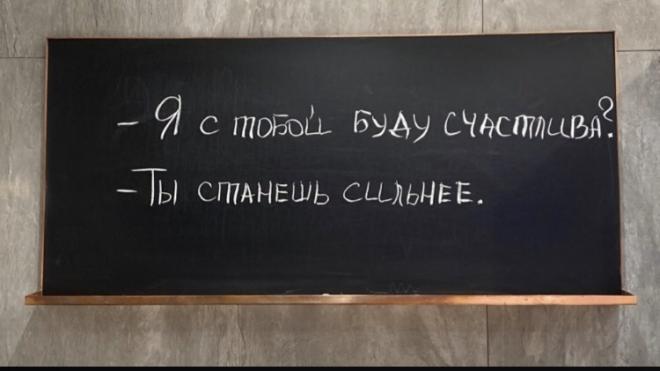 - Я с тобой буду счастлива?
- Ты станешь сильнее.